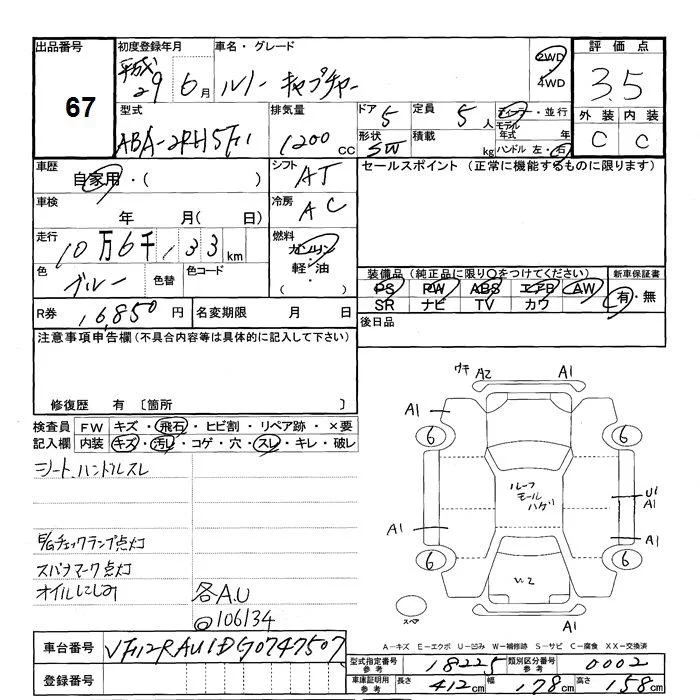 出品番号
67
初度登録年月
平成29 6月
車名・グレード
ルノー キャプチャー
2WD
4WD
評価点
3.5
外装 内装
C C
型式
ABA-2RH5F1
排気量
1200 cc
ドア 5
形状 SW
定員 5人
積載 kg
ディーラー・並行
モデル年式 年
ハンドル 左・右
車歴
自家用・( )
シフト
AT
車検
年 月( 日)
冷房
AC
走行
10万6千133km
燃料
ガソリン
軽・油
色
ブルー
色替
色コード
セールスポイント (正常に機能するものに限ります)
装備品(純正品に限り○をつけてください)
PS PW ABS エアB AW
SR ナビ TV カワ
新車保証書
有・無
R券 16,850円
名変期限 月 日
後日品
注意事項申告欄(不具合内容等は具体的に記入して下さい)
修復歴 有 〔箇所 〕
検査員記入欄
FW キズ・飛石・ヒビ割・リペア跡・×要
内装 キズ・汚レ・コゲ・穴・スレ・キレ・破レ
シート、ハンドルスレ
E/Gチェックランプ点灯
スパナマーク点灯
オイルにじみ
各A.U
@106134
ウキ A2 A1
A1 A1
6 6
ルーフモールハゲ
U1
A1
A1 A1
6 6
U2
スペア
A-キズ E-エクボ U-凹み W-補修跡 S-サビ C-腐食 XX-交換済
車台番号 VF12RAU1DG0747507
登録番号
型式指定番号 参考 18225
類別区分番号 参考 0002
車庫証明用 参考 長さ 412cm 幅 178cm 高さ 158cm